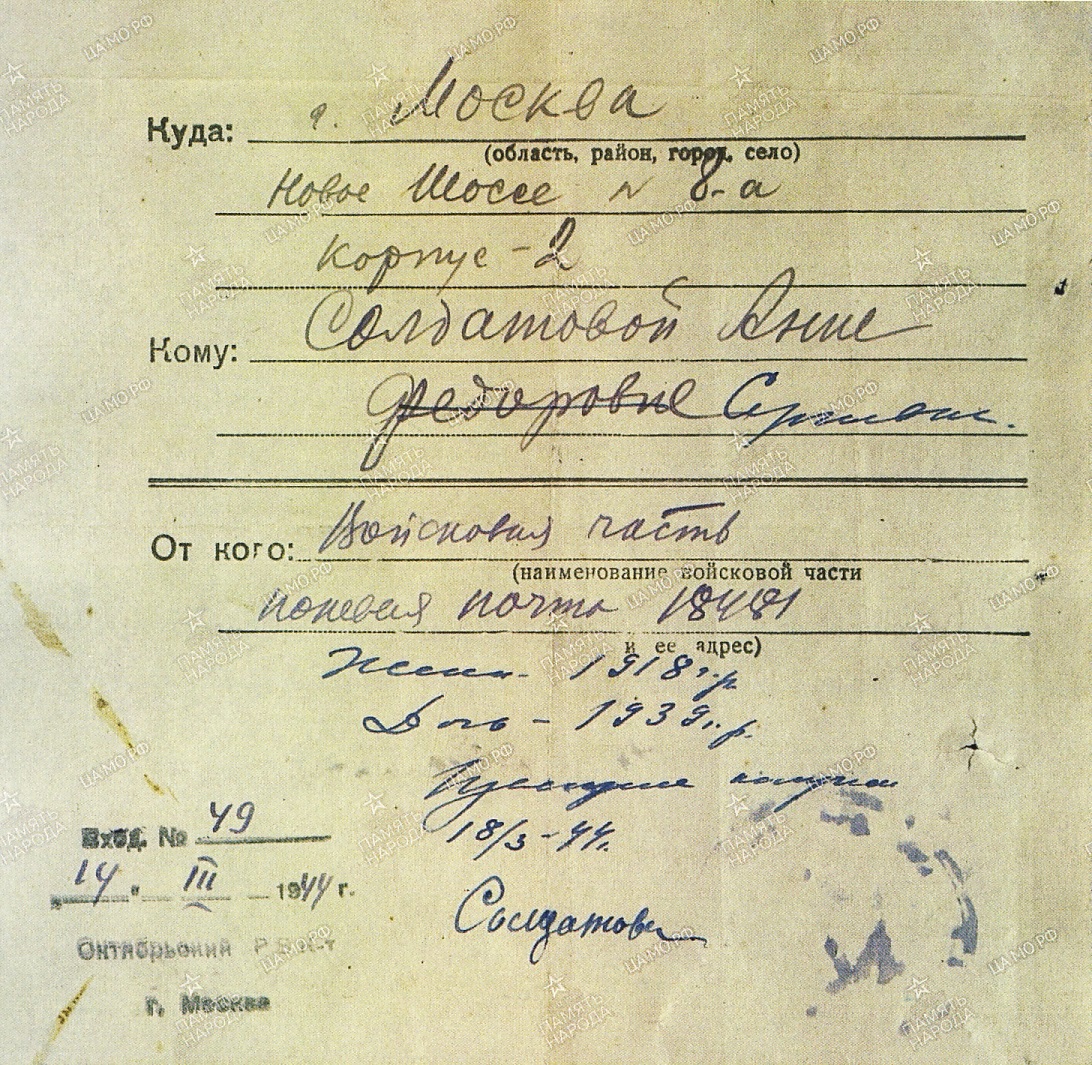 Куда: г. Москва
(область, район, город, село)
Новое Шоссе N 8-а
корпус - 2
Кому: Солдатовой Анне
Федоровне
От кого: Войсковая часть
(наименование войсковой части
полевая почта
и ее адрес)
Жена - 1918 г.р.
Дочь - 1939 г.р.
18/3-44г.
Солдатова
Вход. № 49
14 " III 1944 г.
Октябрьский Р.В.К-т
г. Москва
ПАМЯТЬ НАРОДА
ЦАМО.РФ